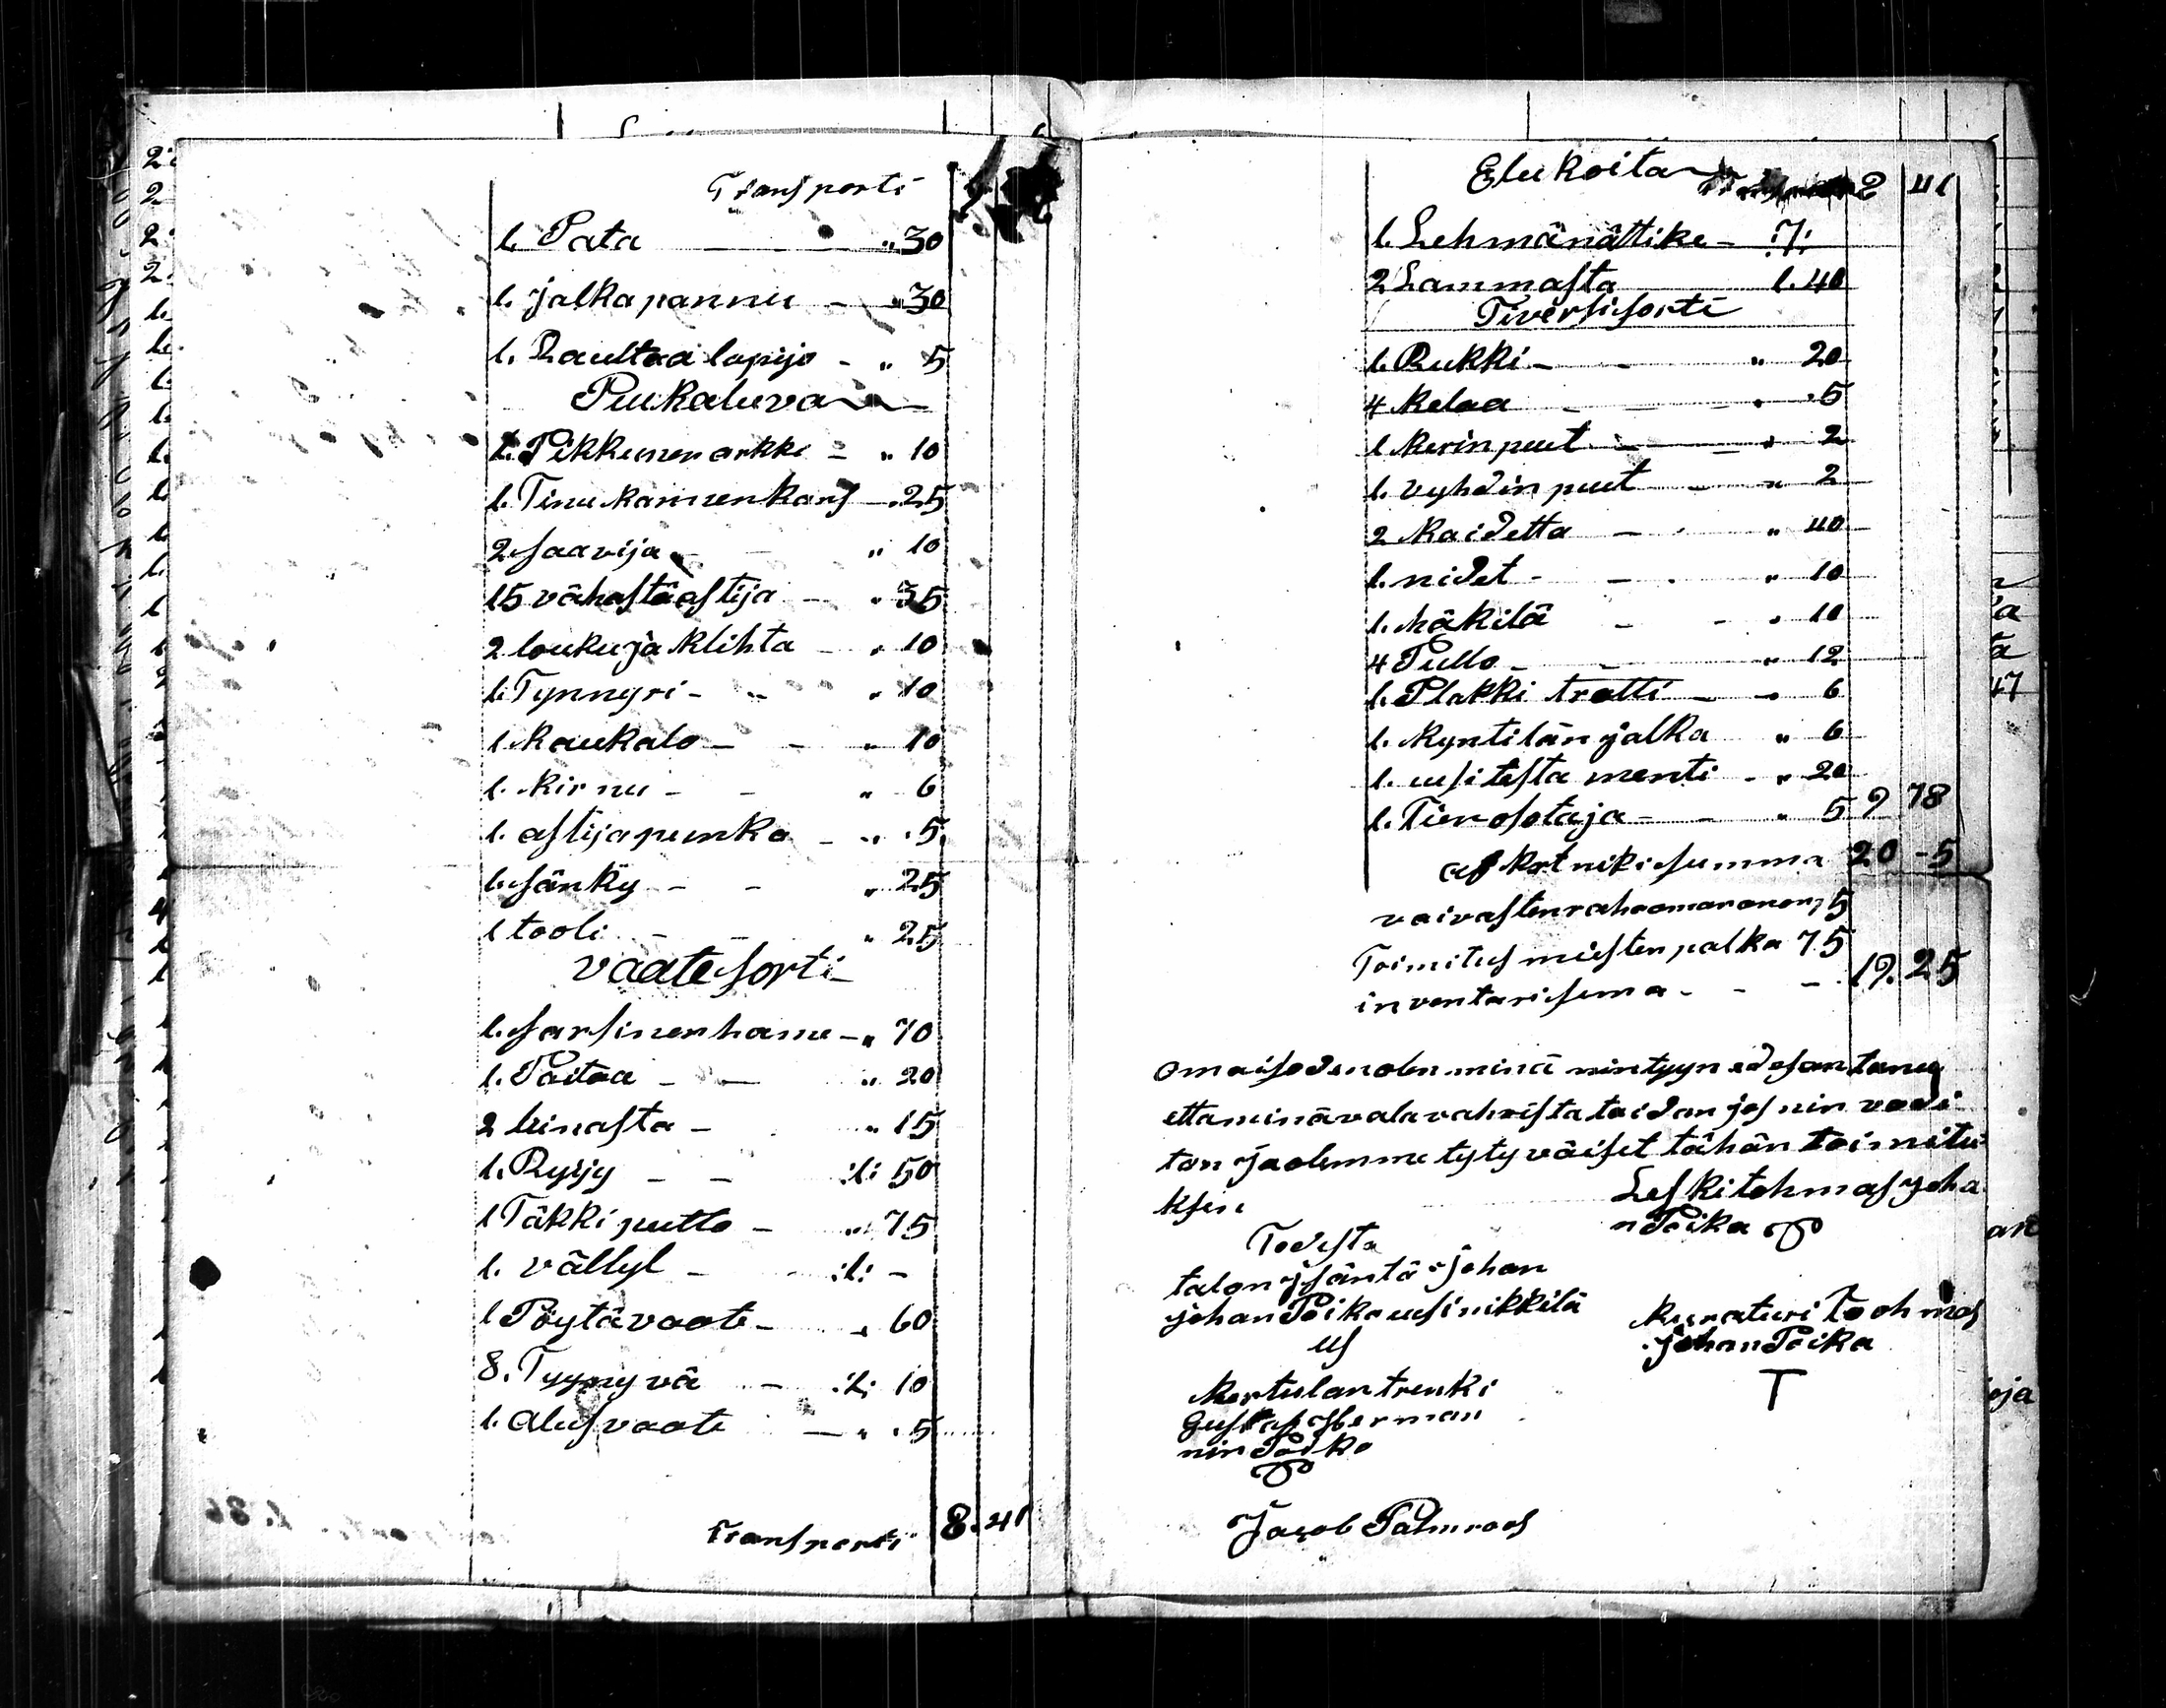 Transporti
1. Pata — — „ 30
1. jalkapannu — „ 30
1. Rautaa lapijo - „ 5
Puukaluva
1. Pikkunen arkki — „ 10
1. Tinu kannenkans — . 25
2 saavija - — „ 10
15 vähästäastija — „ 35
2 loukuja klihta — „ 10
1. Tynnyri - „ „ 10
1. kaukalo — - „ 10
1. kirnu — - „ 6
1. astijapunka — „ . 5
1. sänky - - „ 25
1 tooli - - „ 25
vaatesorti
1. sarsinen hame — „ 70
1. Paitaa - — „ 20
2 liinasta — „ 15
1. Ryijy — — :1: 50
1 Täkki putto — „ 75
1. vällyt — - :1: —
1 Pöytävaate — „ 60
8. Tyynyvä — :1: 10
1. alusvaate — „ . 5
Transporti 8. 41
Elukoita 8 41
1. Lehmänättike — :7:
2 Lammasta 1. 40
Tiversisorti
1. Rukki — - „ 20
4 kelaa — — „ . 5
1 kerinpuut — — „ 2
1. vyhdinpuut - „ 2
2 kaidetta — „ 40
1. nidet - — . „ 10
1. häkilä - - „ 10
4 Pullo — — „ 12
1. Plakki tratti — „ 6
1. kyntilänjalka „ 6
1. uusi testa menti - „ 20
1. Tienosotaja — - „ 5 9 78
summa 20 - 5
vaivasten raha omaronon 5
Toimitus miesten palka 75
inventari suma - - — 19. 25
omaisoden olen minä nintyyn edesantanu
ettaminä vala vahvista taidan jos nin vadi
tan ja olemme tytyväiset tähän toimitu
ksen
Leski tohmas joha
n Poika
Todista
talon isäntä johan
johan Poika uusi nikkilä
us
kuraturi Toohmas
johan Poika
T
kertulan trenki
Gustaf herman
nin Poika
Jacob Palmroos